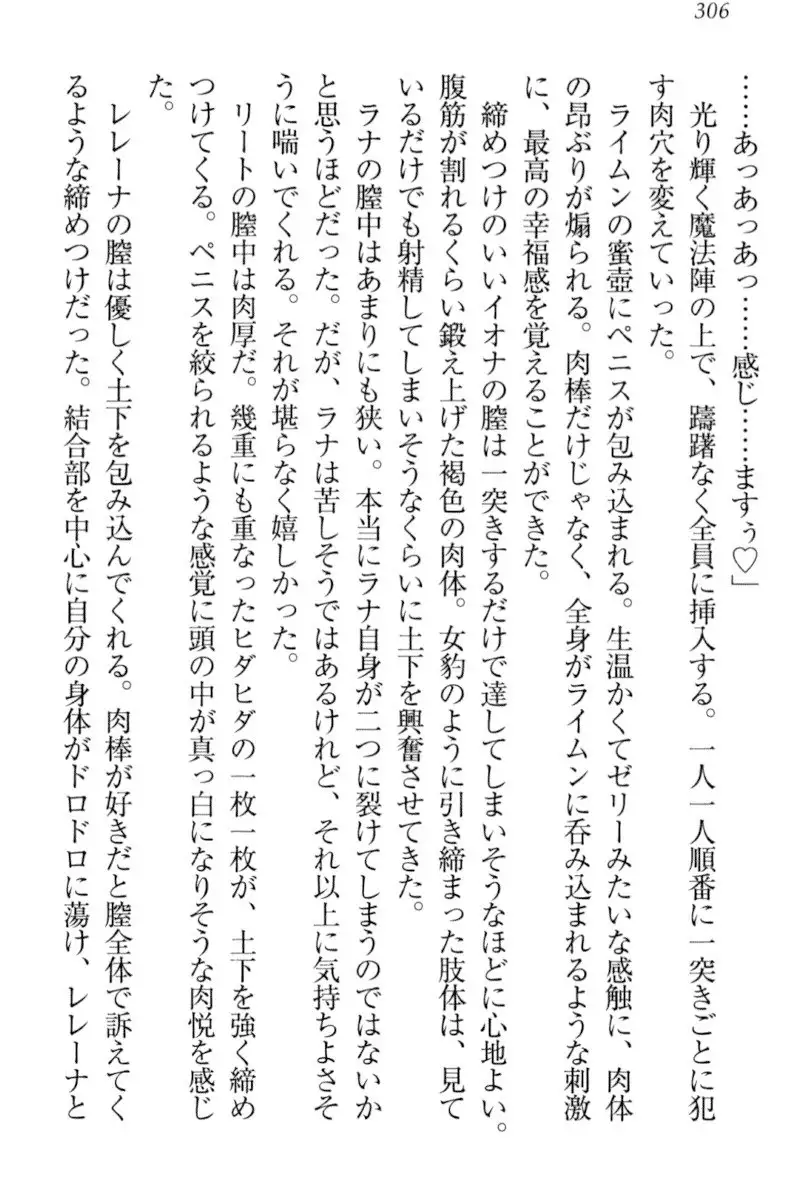 306
……あっあっあっ……感じ……ますぅ♡」
　光り輝く魔法陣の上で、躊躇なく全員に挿入する。一人一人順番に一突きごとに犯
す肉穴を変えていった。
　ライムンの蜜壺にペニスが包み込まれる。生温かくてゼリーみたいな感触に、肉体
の昂ぶりが煽られる。肉棒だけじゃなく、全身がライムンに呑み込まれるような刺激
に、最高の幸福感を覚えることができた。
　締めつけのいいイオナの膣は一突きするだけで達してしまいそうなほどに心地よい。
腹筋が割れるくらい鍛え上げた褐色の肉体。女豹のように引き締まった肢体は、見て
いるだけでも射精してしまいそうなくらいに土下を興奮させてきた。
　ラナの膣中はあまりにも狭い。本当にラナ自身が二つに裂けてしまうのではないか
と思うほどだった。だが、ラナは苦しそうではあるけれど、それ以上に気持ちよさそ
うに喘いでくれる。それが堪らなく嬉しかった。
　リートの膣中は肉厚だ。幾重にも重なったヒダヒダの一枚一枚が、土下を強く締め
つけてくる。ペニスを絞られるような感覚に頭の中が真っ白になりそうな肉悦を感じ
た。
　レレーナの膣は優しく土下を包み込んでくれる。肉棒が好きだと膣全体で訴えてく
るような締めつけだった。結合部を中心に自分の身体がドロドロに蕩け、レレーナと